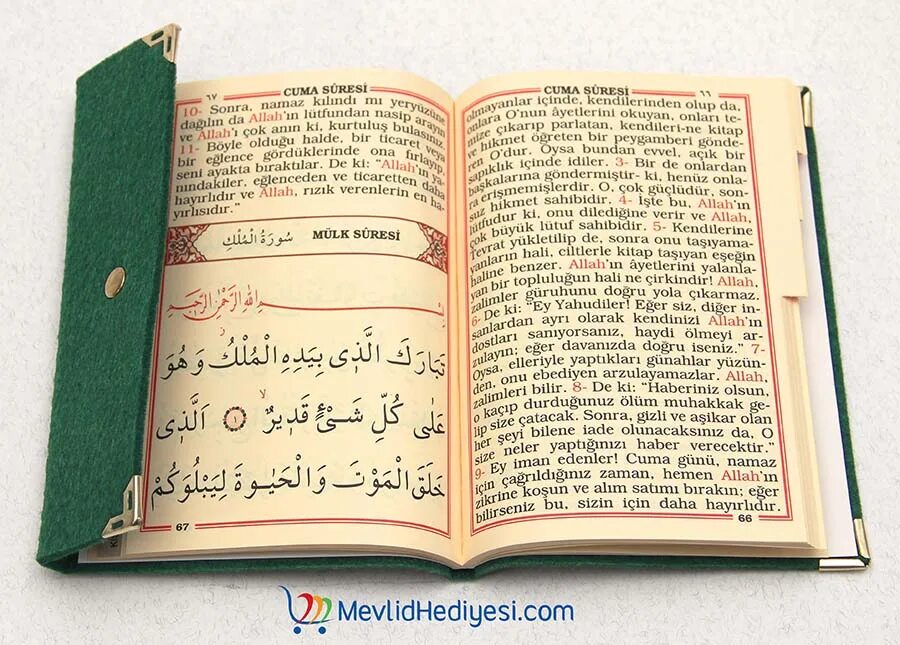 CUMA SÛRESİ ٦٦
olmayanlar içinde, kendilerinden olup da,
onlara O'nun âyetlerini okuyan, onları te-
mize çıkarıp parlatan, kendileri-ne kitap
ve hikmet öğreten bir peygamberi gönde-
ren O'dur. Oysa bundan evvel, açık bir
sapıklık içinde idiler. 3- Bir de onlardan
başkalarına göndermiştir- ki, henüz onla-
ra erişmemişlerdir. O, çok güçlüdür, son-
suz hikmet sahibidir. 4- İşte bu, Allah'ın
lütfudur ki, onu dilediğine verir ve Allah,
çok büyük lütuf sahibidir. 5- Kendilerine
Tevrat yükletilip de, sonra onu taşıyama-
yanların hali, ciltlerle kitap taşıyan eşeğin
haline benzer. Allah'ın âyetlerini yalanla-
yan bir topluluğun hali ne çirkindir! Allah,
zalimler güruhunu doğru yola çıkarmaz.
6- De ki: "Ey Yahudiler! Eğer siz, diğer in-
sanlardan ayrı olarak kendinizi Allah'ın
dostları sanıyorsanız, haydi ölmeyi ar-
zulayın; eğer davanızda doğru iseniz." 7-
Oysa, elleriyle yaptıkları günahlar yüzün-
den, onu ebediyen arzulayamazlar. Allah,
zalimleri bilir. 8- De ki: "Haberiniz olsun,
o kaçıp durduğunuz ölüm muhakkak ge-
lip size çatacak. Sonra, gizli ve aşikar olan
her şeyi bilene iade olunacaksınız da, O
size neler yaptığınızı haber verecektir."
9- Ey iman edenler! Cuma günü, namaz
için çağrıldığınız zaman, hemen Allah'ın
zikrine koşun ve alım satımı bırakın; eğer
bilirseniz bu, sizin için daha hayırlıdır.
66
٦٧ CUMA SÛRESİ
10- Sonra, namaz kılındı mı yeryüzüne
dağılın da Allah'ın lütfundan nasip arayın
ve Allah'ı çok anın ki, kurtuluş bulasınız.
11- Böyle olduğu halde, bir ticaret veya
bir eğlence gördüklerinde ona fırlayıp,
seni ayakta bıraktılar. De ki: "Allah'ın ya-
nındakiler, eğlenceden ve ticaretten daha
hayırlıdır ve Allah, rızık verenlerin en ha-
yırlısıdır."
سُورَةُ الْمُلْكِ MÜLK SÛRESİ
بِسْمِ اللهِ الرَّحْمٰنِ الرَّحِيمِ
تَبَارَكَ الَّذ۪ي بِيَدِهِ الْمُلْكُۘ وَهُوَ
عَلٰى كُلِّ شَيْءٍ قَد۪يرٌۙ ﴿١﴾ اَلَّذ۪ي
خَلَقَ الْمَوْتَ وَالْحَيٰوةَ لِيَبْلُوَكُمْ
67
MevlidHediyesi.com